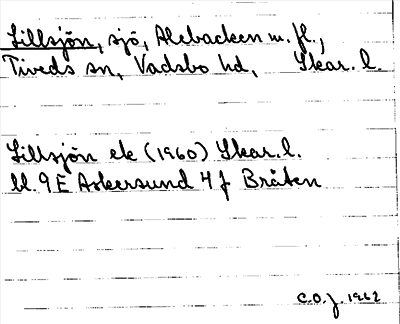 Lillsjön, sjö, Alebacken m. fl.,
Tiveds sn, Vadsbo hd, Skar. l.
Lillsjön ek (1960) Skar. l.
bl. 9E Askersund 4f Bråten
C.O.J. 1962